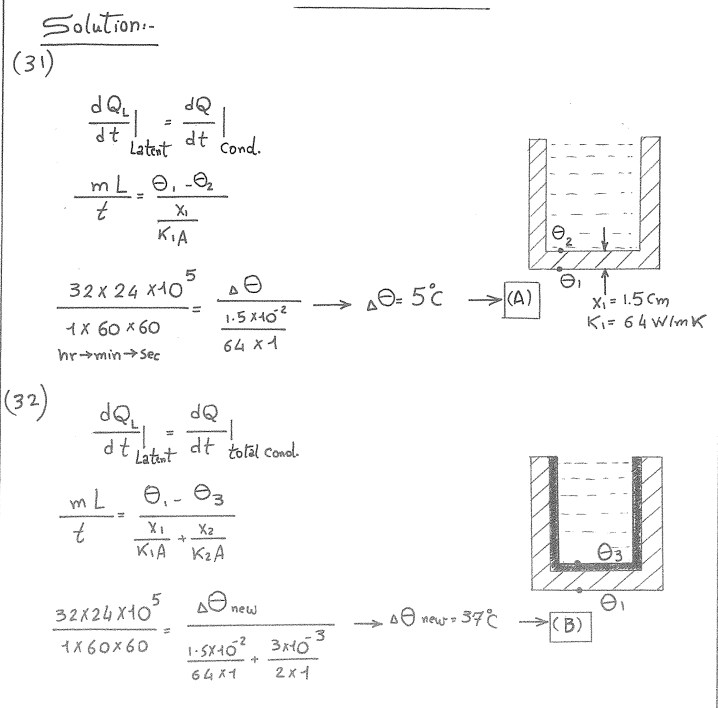 Solution:-
(31)
dQL/dt|Latent = dQ/dt|Cond.
mL/t = (Θ1 - Θ2)/(x1/K1A)
(32×24×10^5)/(1×60×60) = ΔΘ/((1.5×10^-2)/(64×1)) → ΔΘ = 5°C → (A)
hr→min→sec
Θ2
Θ1
x1 = 1.5 Cm
K1 = 64 W/mK
(32)
dQL/dt|Latent = dQ/dt|total Cond.
mL/t = (Θ1 - Θ3)/(x1/K1A + x2/K2A)
(32×24×10^5)/(1×60×60) = ΔΘnew/((1.5×10^-2)/(64×1) + (3×10^-3)/(2×1)) → ΔΘnew = 37°C → (B)
Θ3
Θ1